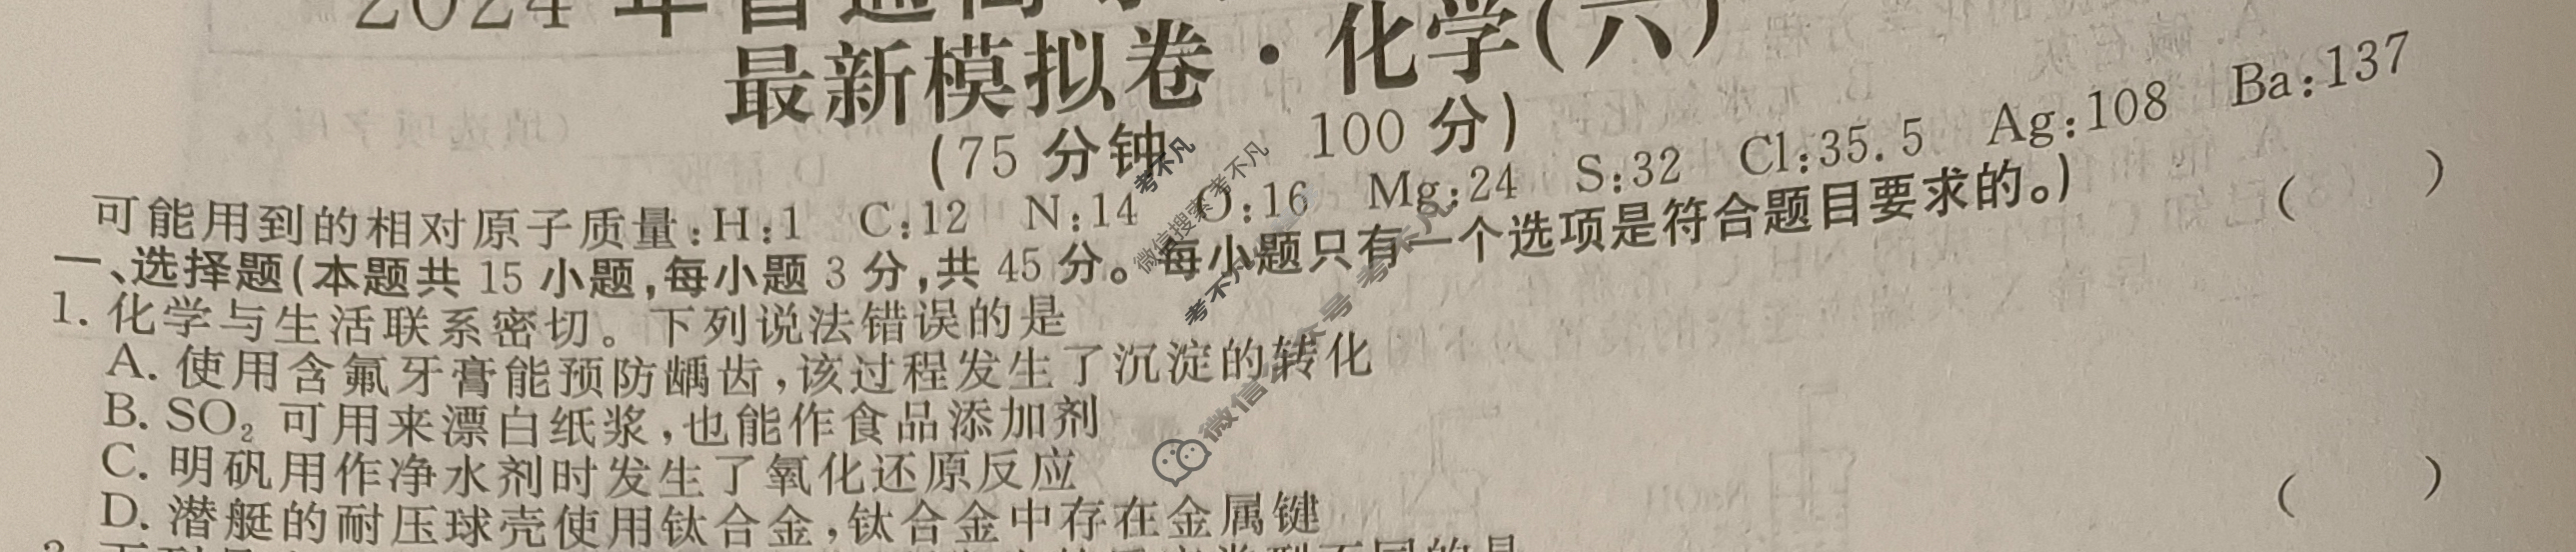 2024年普通高
最新模拟卷·化学(六)
(75分钟 100分)
可能用到的相对原子质量:H:1 C:12 N:14 O:16 Mg:24 S:32 Cl:35.5 Ag:108 Ba:137
一、选择题(本题共15小题,每小题3分,共45分。每小题只有一个选项是符合题目要求的。)
1.化学与生活联系密切。下列说法错误的是 ( )
A.使用含氟牙膏能预防龋齿,该过程发生了沉淀的转化
B.SO₂可用来漂白纸浆,也能作食品添加剂
C.明矾用作净水剂时发生了氧化还原反应
D.潜艇的耐压球壳使用钛合金,钛合金中存在金属键
( )
考不凡
微信搜索考不凡
考不凡
微信公众号 考不凡